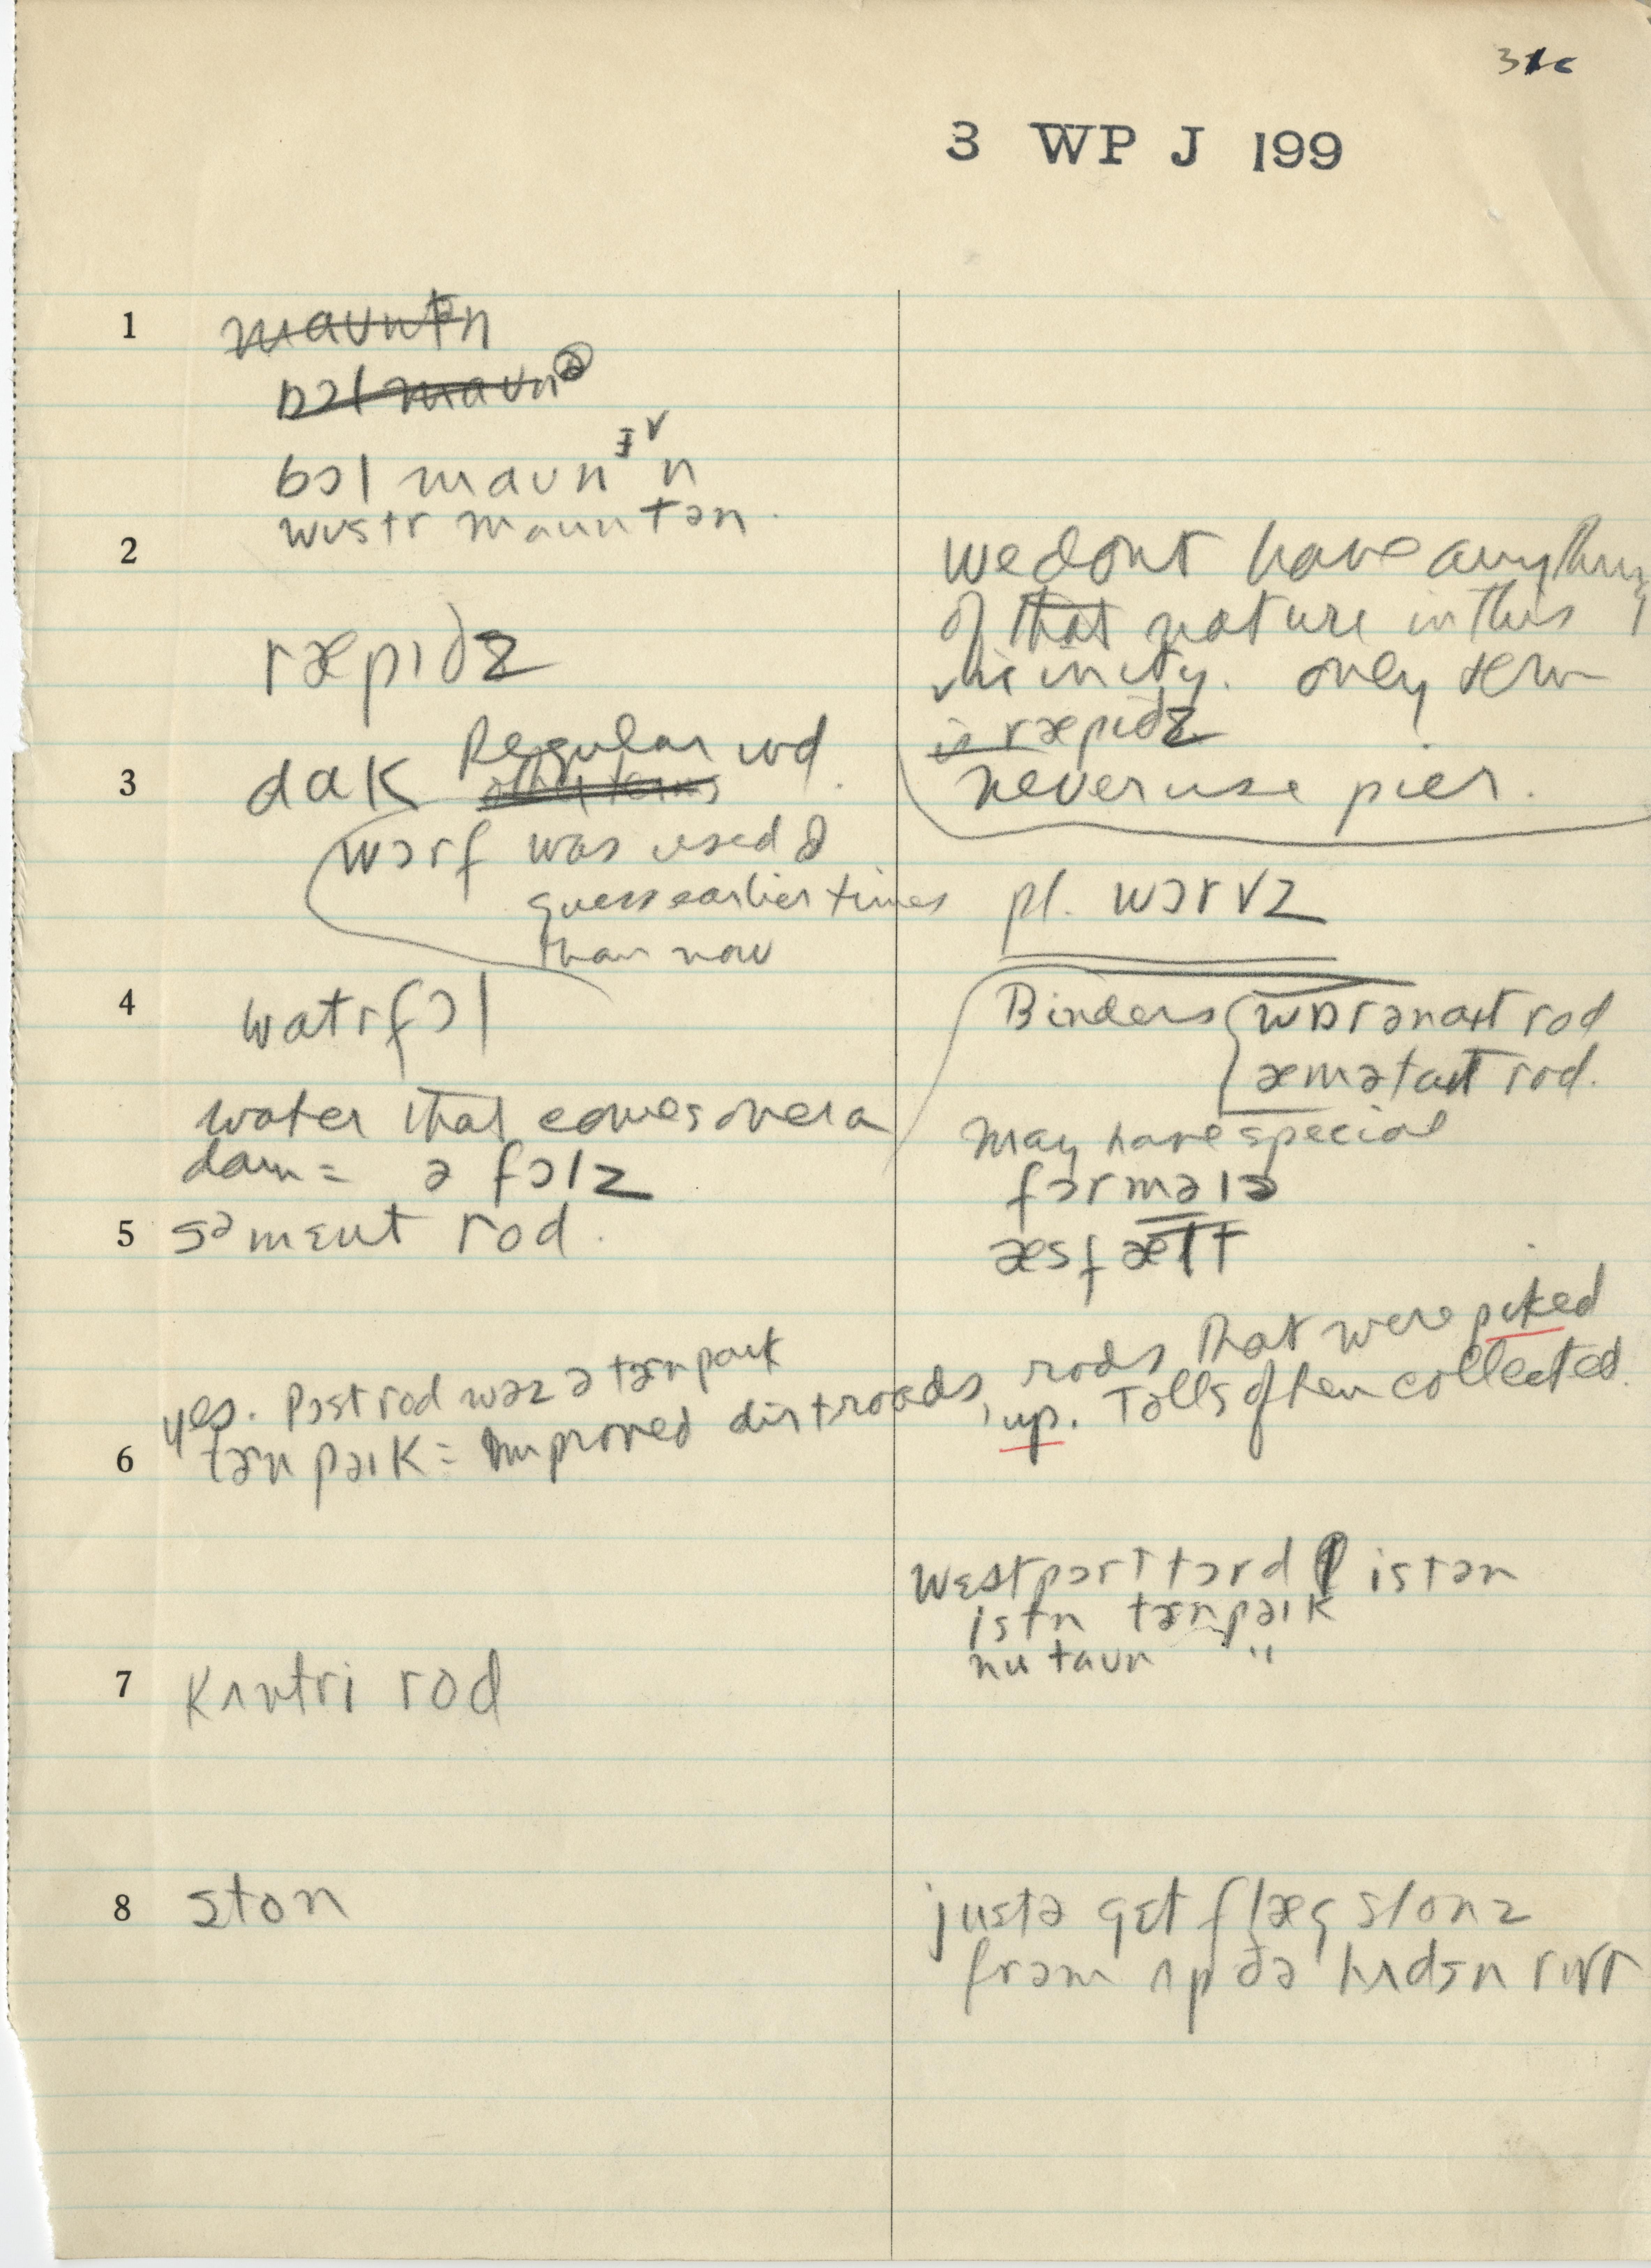 3 WP J 199
1 maʊntn
bɔl maʊnə
bɔl maʊnɪn
wʊstr maʊntən.
2 ræpɪdz
we dont have anything
of that nature in this
vicinity. only term
is ræpɪdz
never use pier.
3 dɑk Regular wd.
wɔrf was used I
guess earlier times
than now
pl. wɔrvz
4 watrfɔl
water that comes over a
dam = ə fɔlz
Binders
rod
rod.
may have special
fɔrmələ
æsfælt
5 səmɛnt rod.
yes. Post rod wəz ə tɜrnpaɪk
6 tɜrnpəɪk = improved dirt roads, rods that were piked
up. Tolls often collected.
wɛstpɔrt tɔrd istən
istn tɜrnpəɪk
nu taʊn "
7 kʌntri rod
8 ston
justə gɛt flæg stonz
frəm ʌp ðə hʌdsn rɪvr